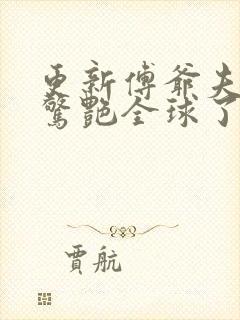 更新傅爺夫
驚艷全球了
賈航